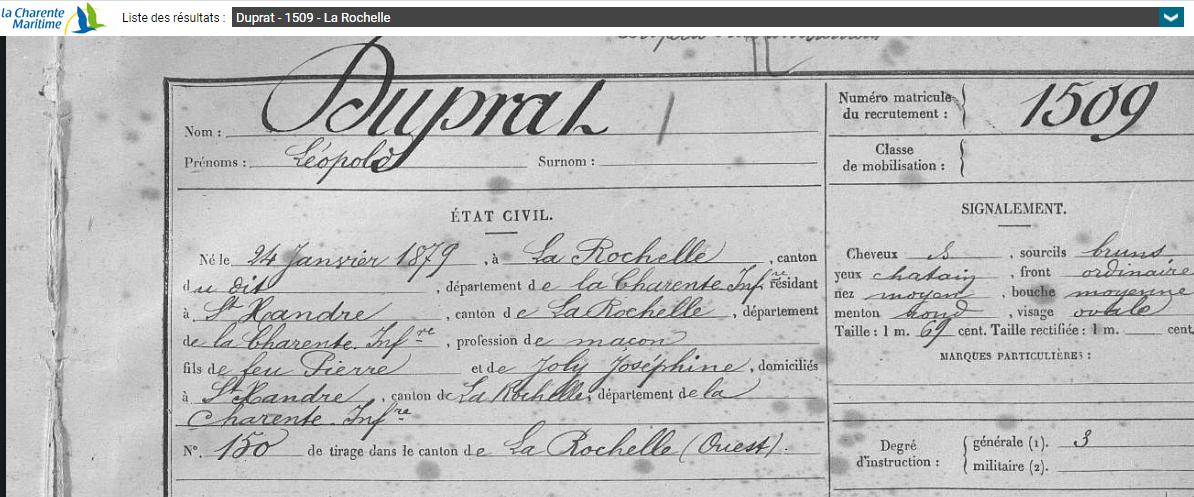 la Charente
Maritime
Liste des résultats : Duprat - 1509 - La Rochelle
Nom : Duprat
Prénoms : Léopold Surnom :
Numéro matricule
du recrutement : 1509
Classe
de mobilisation :
ÉTAT CIVIL.
Né le 24 Janvier 1879, à La Rochelle, canton
du dit, département de la Charente Infre résidant
à St Xandre, canton de La Rochelle, département
de la Charente Infre, profession de maçon
fils de feu Pierre et de Joly Joséphine, domiciliés
à St Xandre, canton de La Rochelle, département de la
Charente Infre
N°. 150 de tirage dans le canton de La Rochelle (Ouest).
SIGNALEMENT.
Cheveux et, sourcils bruns
yeux chatain, front ordinaire
nez moyen, bouche moyenne
menton rond, visage ovale
Taille : 1 m. 69 cent. Taille rectifiée : 1 m. cent.
MARQUES PARTICULIÈRES :
Degré
d'instruction :
générale (1). 3
militaire (2).